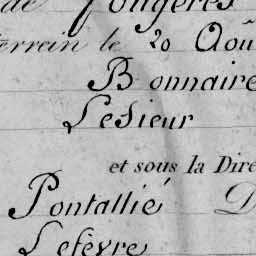 de Fougères
terrein le 20 Aoû
Bonnaire
LeSieur
et sous la Dire
Pontallié D
Lefèvre